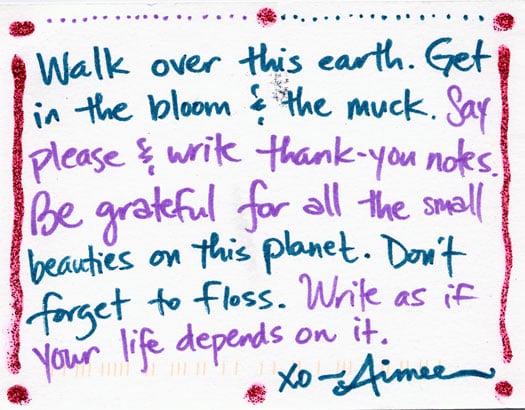 Walk over this earth. Get
in the bloom & the muck. Say
please & write thank-you notes.
Be grateful for all the small
beauties on this planet. Don't
forget to floss. Write as if
your life depends on it.
xo -Aimee